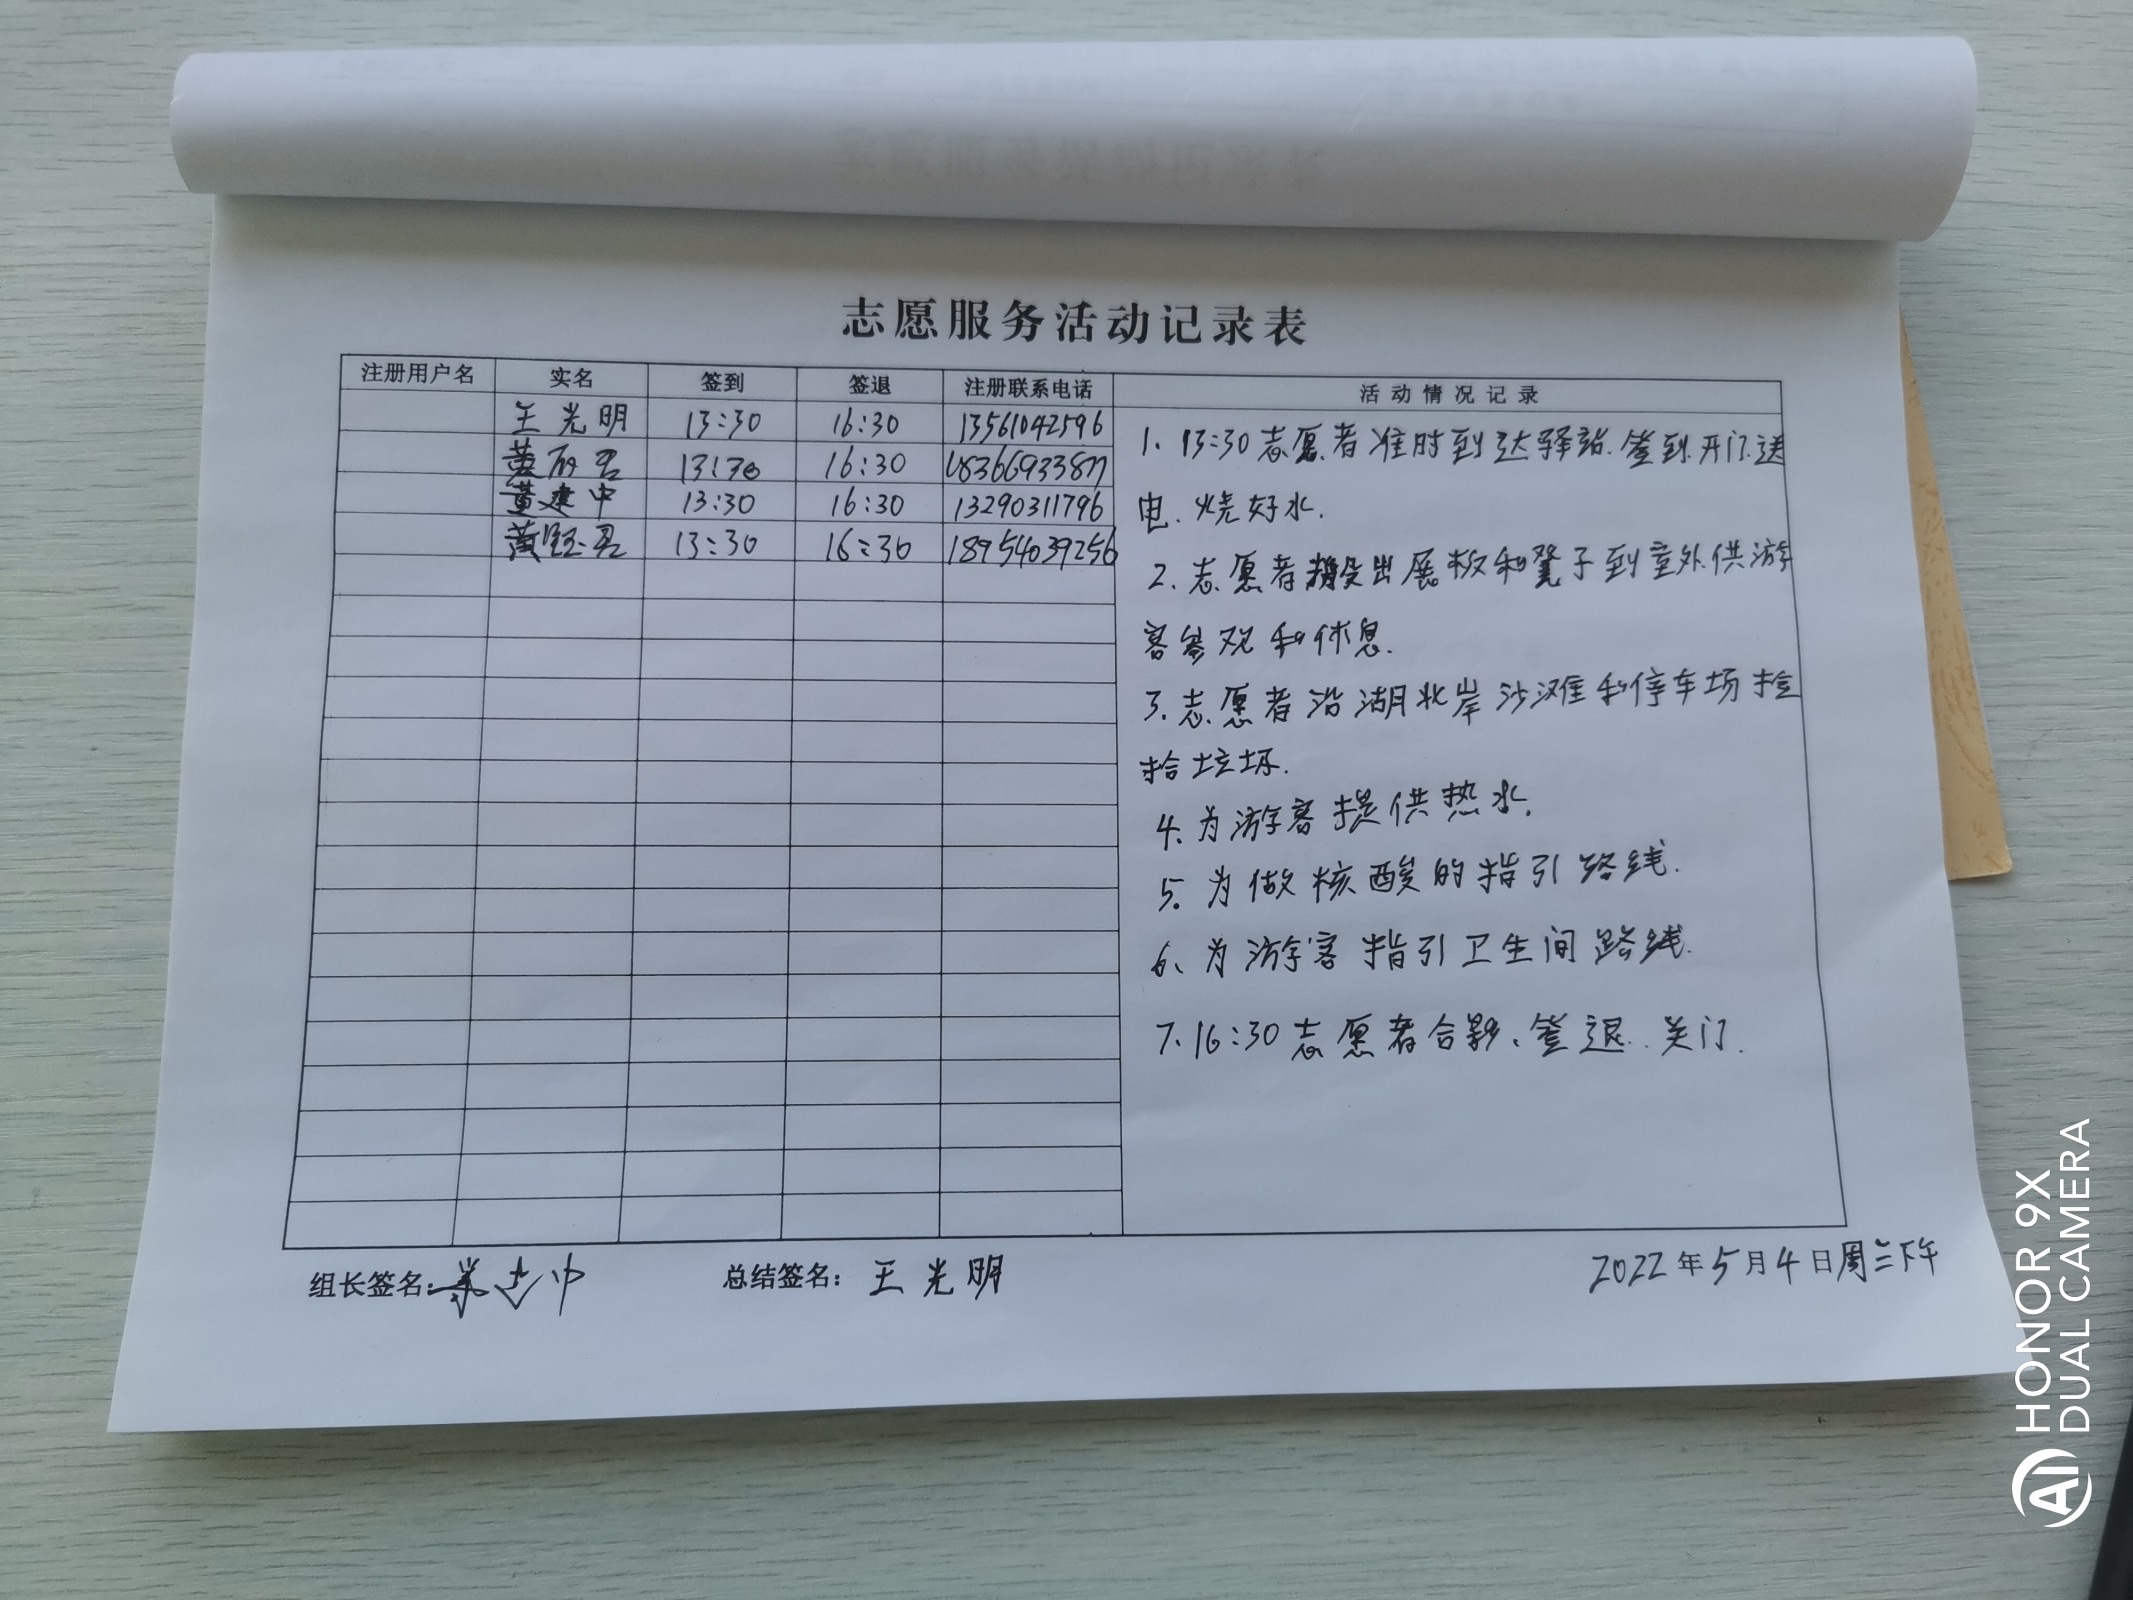 志愿服务活动记录表
注册用户名 实名 签到 签退 注册联系电话 活动情况记录
王光明 13:30 16:30 13561042596
黄 13:30 16:30 18366933877
黄建中 13:30 16:30 13290311796
黄 13:30 16:30 18954039256
1. 13:30志愿者准时到达驿站.签到.开门.送
电.烧好水.
2.志愿者搬出展板和凳子到室外供游
客参观和休息.
3.志愿者沿湖北岸沙滩和停车场捡
拾垃圾.
4.为游客提供热水.
5.为做核酸的指引路线.
6、为游客指引卫生间路线.
7.16:30志愿者合影、签退.关门.
组长签名: 总结签名: 王光明 2022年5月4日周三下午
HONOR 9X
AI DUAL CAMERA